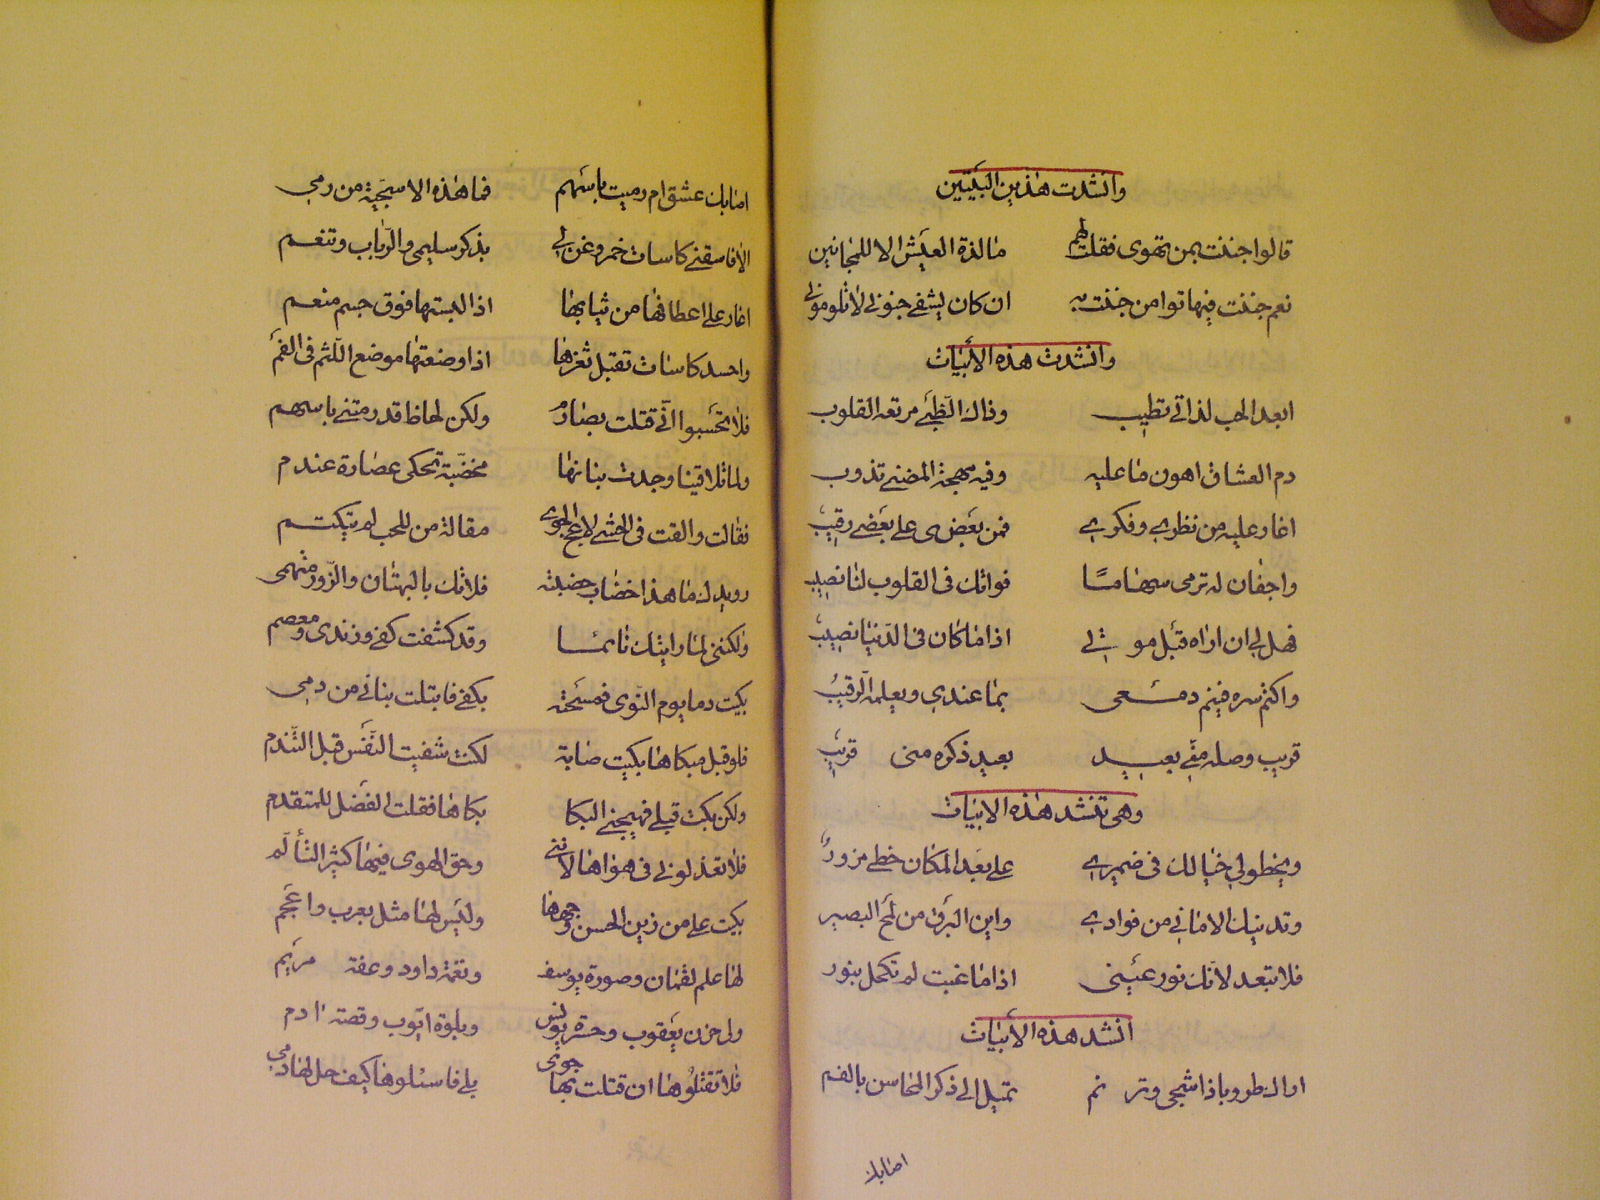 وانشدت هذين البيتين
قالوا جننت بمن تهوى فقلت لهم ما لذة العيش الا للمجانين
نعم جننت فهاتوا من جننت به ان كان يشفى جنونى لا تلومونى
وانشدت هذه الأبيات
ابعد الحب لذاتى تطيب وذاك الظبي مرتعه القلوب
دم العشاق اهون ما عليه وفيه مهجة المضنى تذوب
اغار عليه من نظرى وفكرى فمن بعضى على بعضى رقيب
واجفان له ترمى سهاما فواتك فى القلوب لنا نصيب
فهل لى ان اراه قبل موتى اذا ما كان فى الدنيا نصيب
واكتم سره فينم دمعى بما عندى ويعلمه الرقيب
قريب وصله منى بعيد بعيد ذكره منى قريب
وهى تنشد هذه الابيات
ويخطو لى خيالك فى ضميرى على بعد المكان خطى مزور
وتدنيك الامانى من فوادى واين البرق من لمح البصير
فلا تبعد لانك نور عينى اذا ما غبت لم تكحل بنور
انشد هذه الأبيات
اراك طروبا ذا شجى وترنم تميل الى ذكر المحاسن بالفم
اصابك
اصابك عشق ام رميت باسهم فما هذه الا سجية من رمى
الا فاسقنى كاسات خمر وغن لى بذكر سليمى والرباب وتنغم
اغار على اعطافها من ثيابها اذا لبستها فوق جسم منعم
واحسد كاسات تقبل ثغرها اذا وضعتها موضع اللثم فى الفم
فلا تحسبوا انى قتلت بصارم ولكن لحاظا قد رمتنى باسهم
ولما تلاقينا وجدت بنانها مخضبة تحكى عصارة عندم
فقالت والقت فى الحشى لاعج الجوى مقالة من للحب لم يتكتم
رويدك ما هذا خضاب خضبته فلا تك بالبهتان والزور متهمى
ولكننى لما رايتك نائما وقد كشفت كفى وزندى ومعصم
بكيت دما يوم النوى فمسحته بكفى فابتلت بنانى من دمى
فلو قبل مبكاها بكيت صبابة لكنت شفيت النفس قبل التندم
ولكن بكت قبلى فهيجنى البكا بكاها فقلت الفضل للمتقدم
فلا تعذلونى فى هواها لاننى وحق الهوى فيها كثير التألم
بكيت على من زين الحسن وجهها وليس لها مثل بعرب واعجم
لها علم لقمان وصورة يوسف ونغمة داود وعفة مريم
ولى حزن يعقوب وحسرة يونس وبلوة ايوب وقصة ادم
فلا تقتلوها ان قتلت بها جوى بلى فاسئلوها كيف حل لها دمى